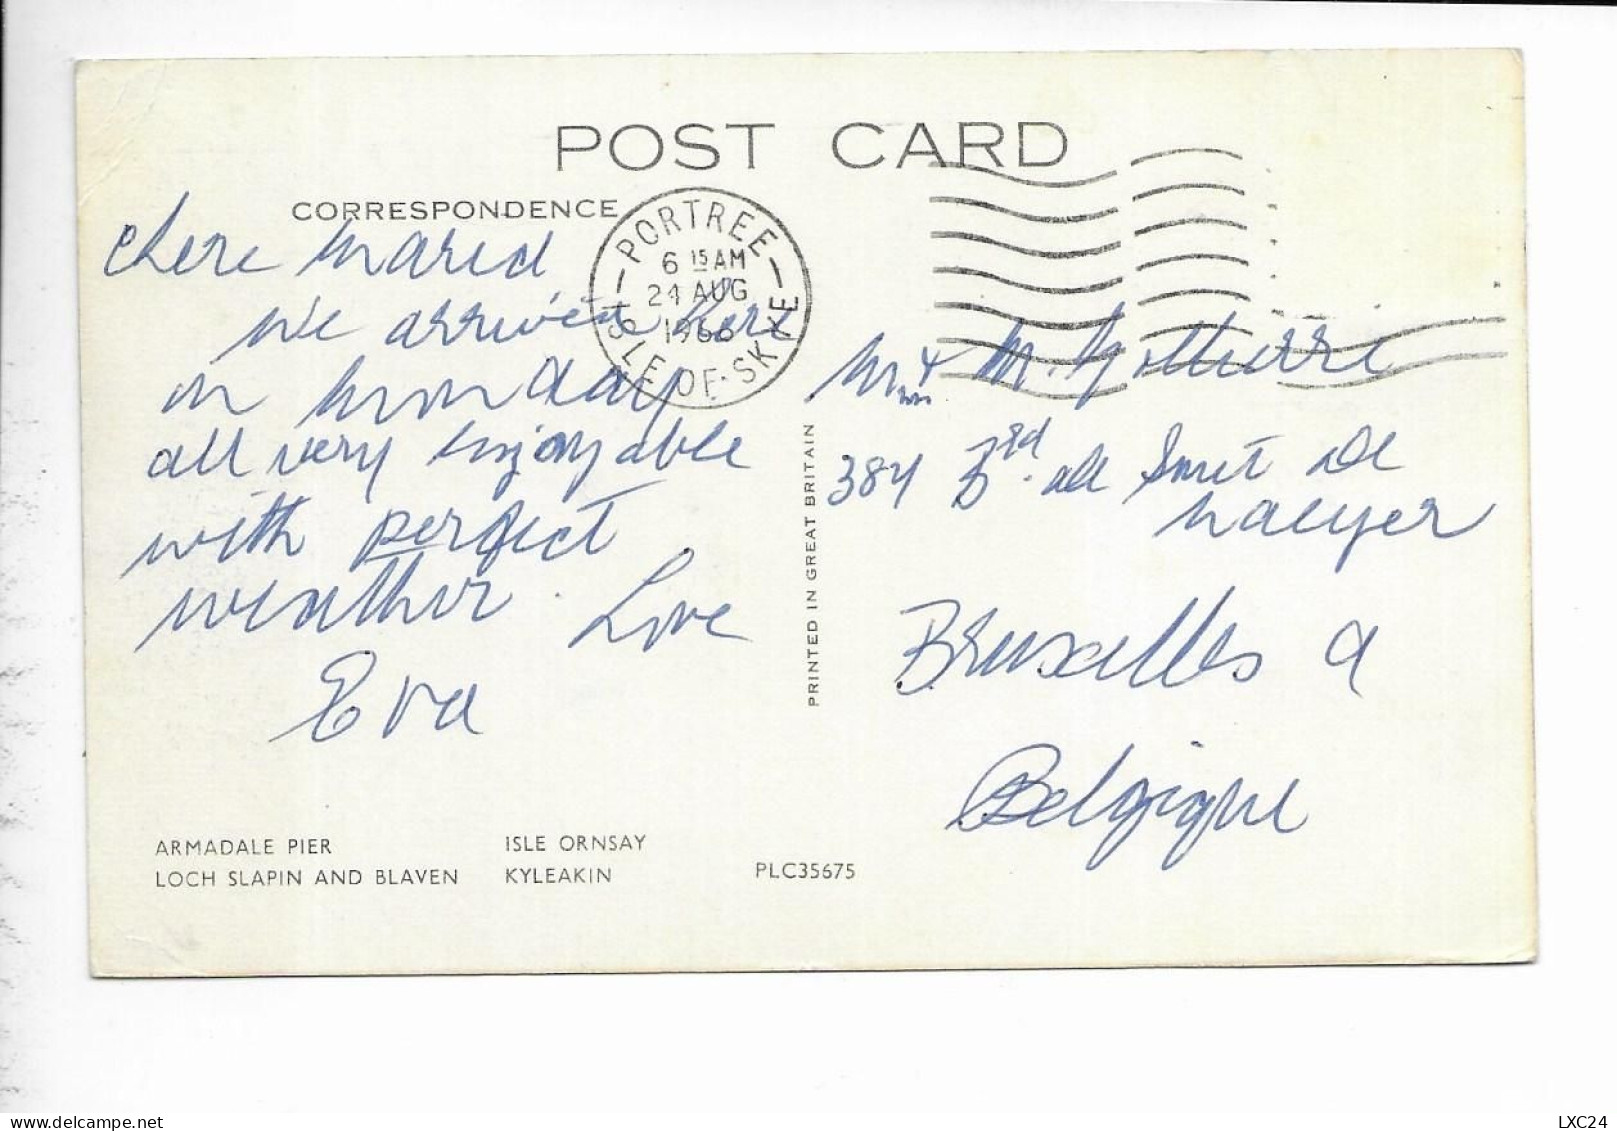 POST CARD
CORRESPONDENCE
PORTREE
6 15 AM
24 AUG
1966
ISLE OF SKYE
Chere
We arrived here
on Monday
all very enjoyable
with perfect
weather. Love
Eva
PRINTED IN GREAT BRITAIN
M. &  M.
384 Bd. de Smet de
Naeyer
Bruxelles
Belgique
ARMADALE PIER
ISLE ORNSAY
LOCH SLAPIN AND BLAVEN
KYLEAKIN
PLC35675
LXC24